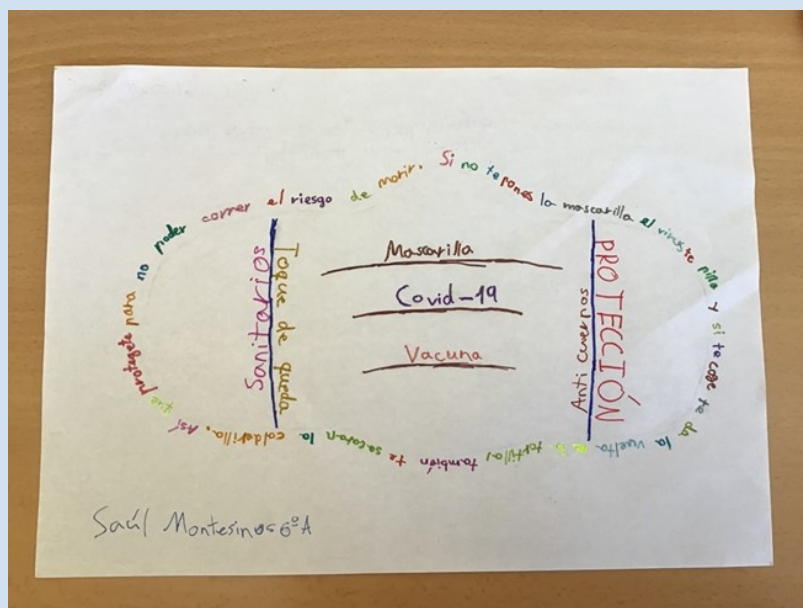 Si no te pones la mascarilla el virus te pilla y si te coge te da la vuelta a la tortilla, también te sacaran la calderilla. Así que protegete para no poder correr el riesgo de morir.
Sanitarios
Toque de queda
Mascarilla
Covid-19
Vacuna
Anti cuerpos
PROTECCIÓN
Saúl Montesinos 6ºA